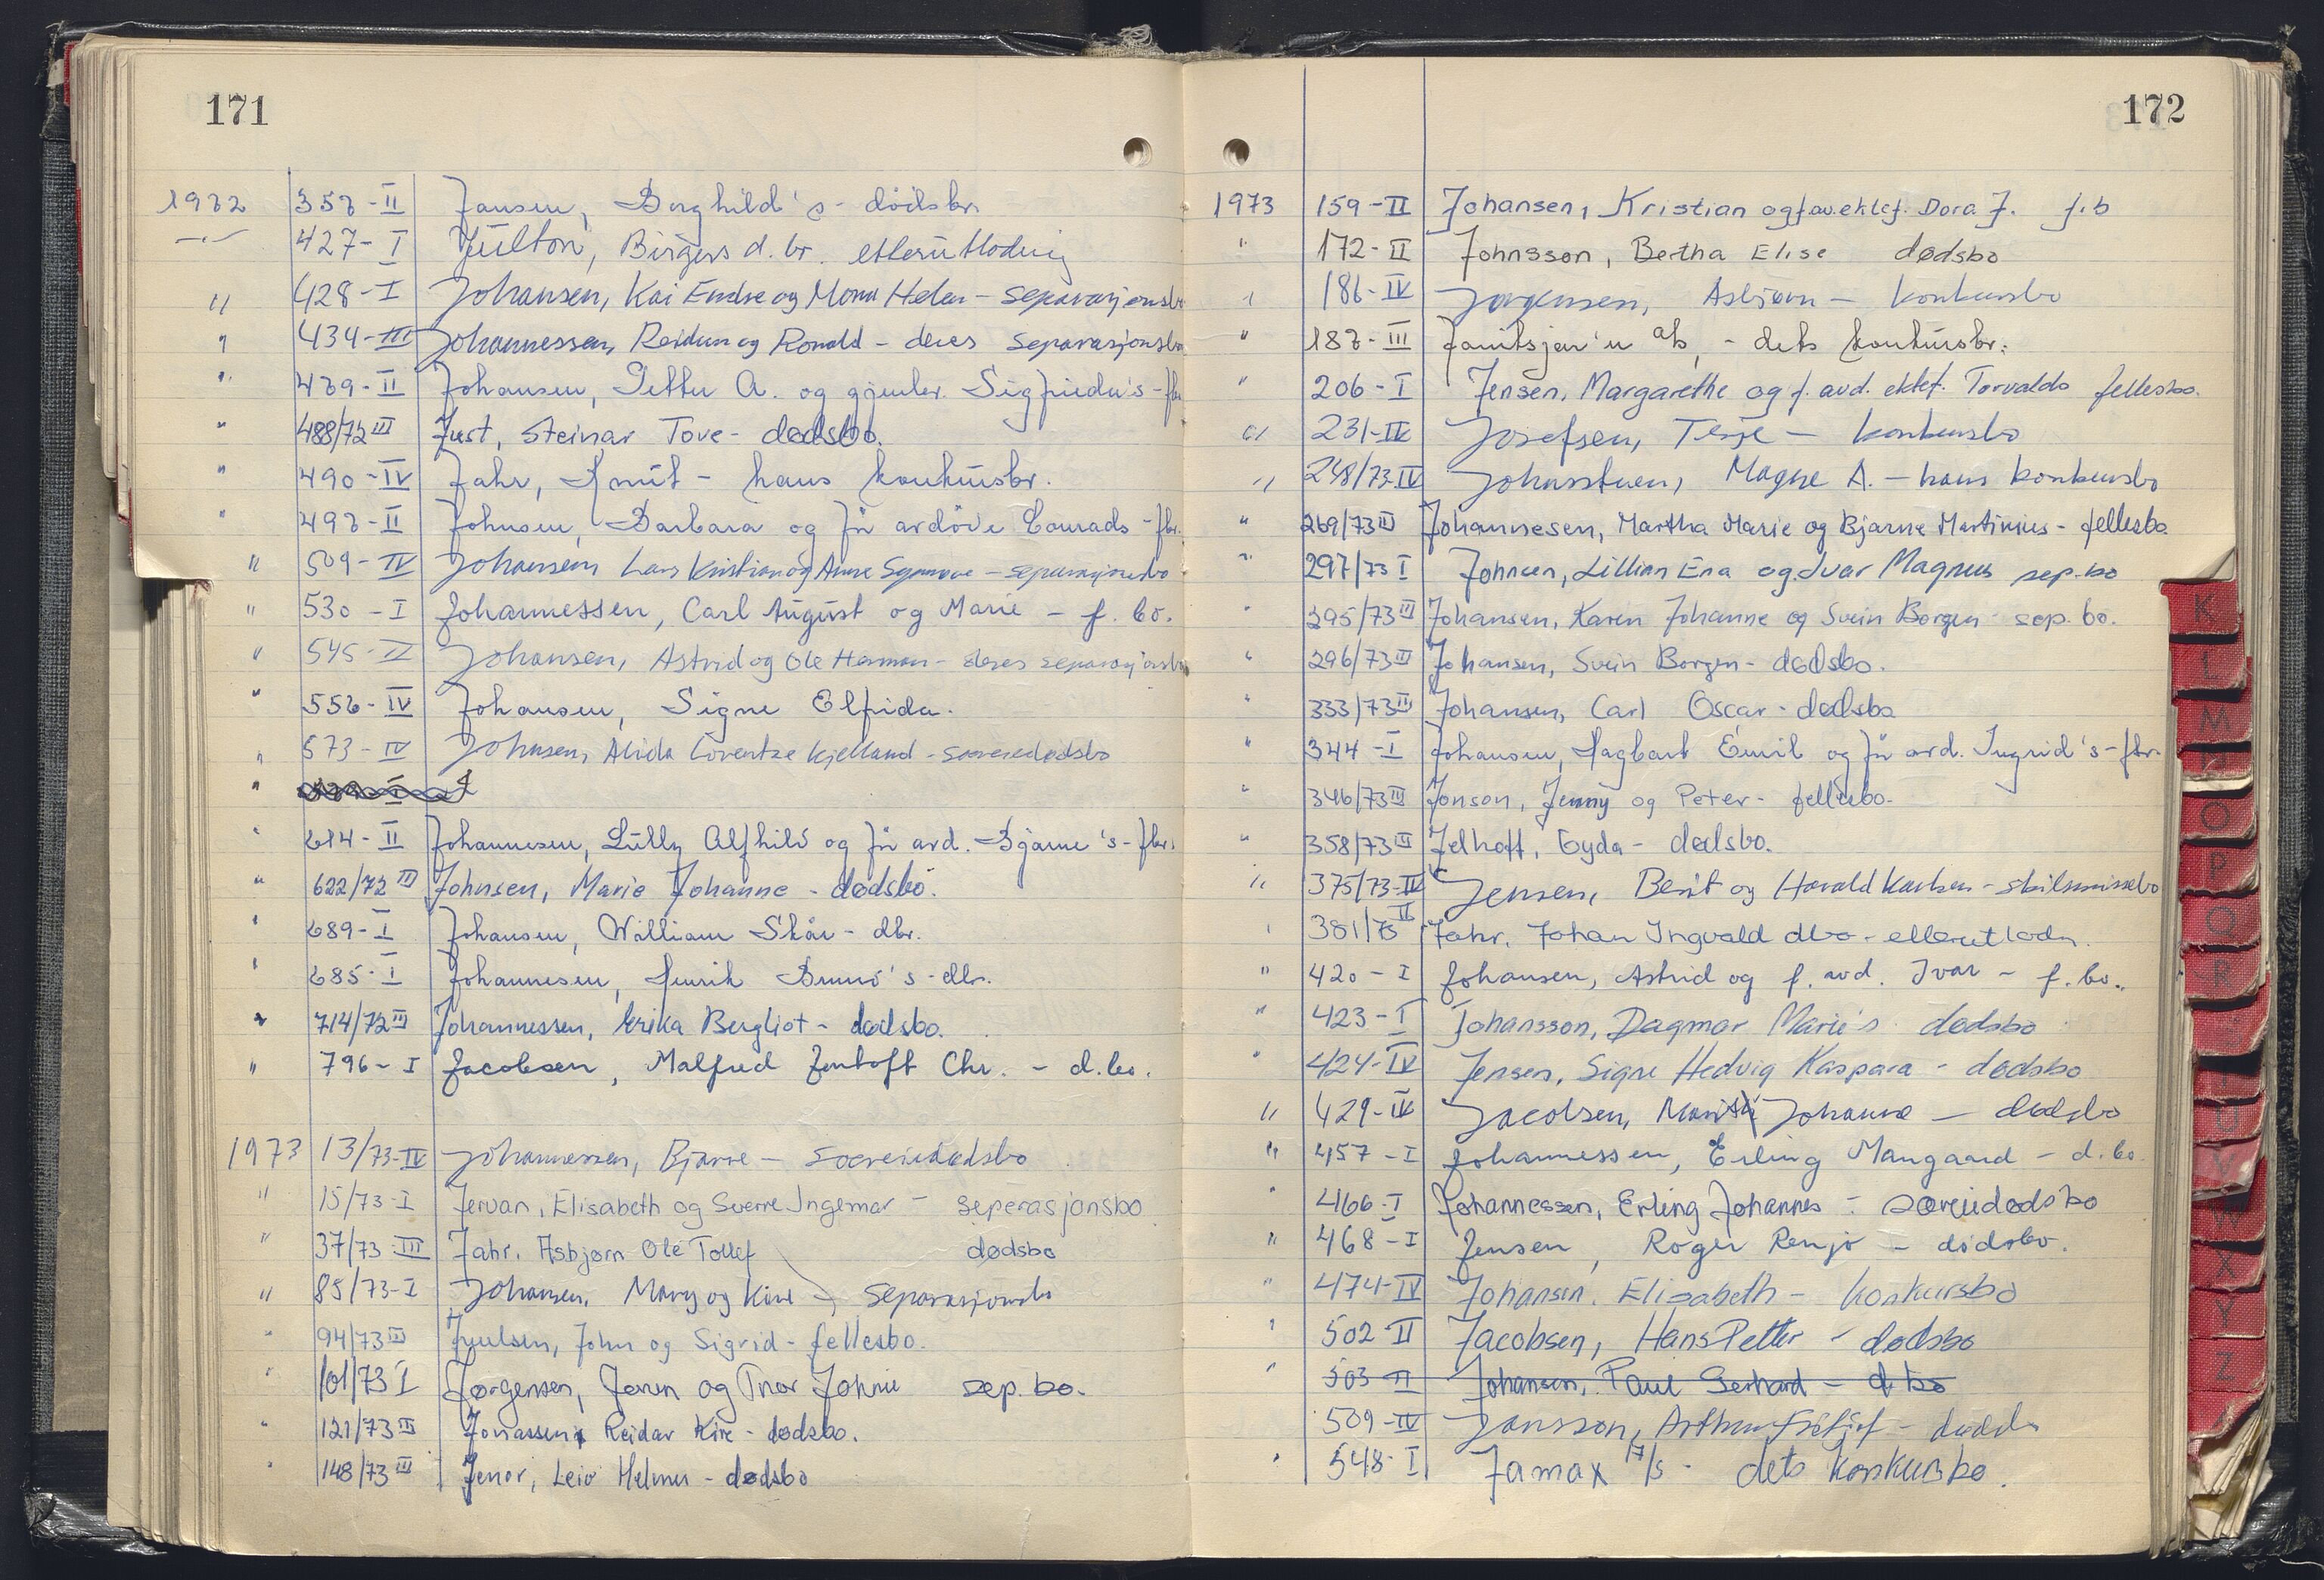 171
1972 353-II Jansen, Borghild's - dødsbr.
427-I Julton, Birgers d.br. etterutlodning
" 428-I Johansen, Kai Endre og Mona Helen - separasjonsbo
" 434-III Johannessen, Reidun og Ronald - deres separasjonsbo
" 439-II Johansen, Petter A. og gjenlev. Sigfrieda's - fbr.
" 488/72 III Just, Steinar Tove - dødsbo.
" 490-IV Jahr, Knut - hans konkursbr.
" 493-II Johnsen, Barbara og før avdøde Conrads - fbr.
" 509-IV Johansen Lars Kristian og Anne Synnøve - separasjonsbo
" 530-I Johannessen, Carl August og Marie - f.bo.
" 545-IV Johansen, Astrid og Ole Herman - deres separasjonsbo
" 553-IV Johansen, Signe Elfrida.
" 573-IV Johnsen, Alida Lorentze Kjelland - særeiedødsbo
"
" 614-II Johannesen, Lully Alfhild og før avd. Bjarne's - fbr.
" 622/72 III Johnsen, Marie Johanne - dødsbo.
" 689-I Johansen, William Skår - dbr.
" 685-I Johannesen, Henrik Bruno's - dbr.
" 714/72 III Johannessen, Erika Bergliot - dødsbo.
" 796-I Jacobsen, Malfred Jentoft Chr. - d.bo.
1973 13/73-IV Johannessen, Bjarne - særeiedødsbo
" 15/73-I Jervan, Elisabeth og Sverre Ingemar - seperasjonsbo
" 37/73 III Jahr, Asbjørn Ole Tollef dødsbo
" 85/73-I Johansen, Mary og Kåre - separasjonsbo
" 94/73 III Juulsen, John og Sigrid - fellesbo.
" 101/73 I Jørgensen, Jorun og Thor Johnie sep.bo.
" 121/73 III Jonassen, Reidar Kåre - dødsbo.
" 148/73 III Jenor, Leiv Helmer - dødsbo
172
1973 159-II Johansen, Kristian og f.av.ektef. Dora J. f.b
" 172-II Johnsson, Bertha Elise dødsbo
" 186-IV Jørgensen, Asbjørn - konkursbo
" 183-III Janitsjar'n a/s, - dets konkursbr.
" 206-I Jensen, Margarethe og f. avd. ektef. Torvalds fellesbo.
" 231-IV Josefsen, Terje - konkursbo
" 248/73-IV Johnsstuen, Magne A. - hans konkursbo
" 269/73 III Johannesen, Martha Marie og Bjarne Martinius - fellesbo
" 297/73 I Johnsen, Lillian Ena og Ivar Magnus sep.bo
" 295/73 III Johansen, Karen Johanne og Svein Borgen sep.bo.
" 296/73 III Johansen, Svein Borgen - dødsbo.
" 333/73 III Johansen, Carl Oscar - dødsbo
" 344-I Johansen, Hagbart Emil og før avd. Ingrid's - fbr.
" 346/73 III Jonson, Jenny og Peter - fellesbo.
" 358/73 III Jelhoff, Gyda - dødsbo.
" 375/73-IV Jensen, Berit og Harald Karlsen - skilsmissebo
" 381/73 II Jahr, Johan Ingvald dbo - etterutlodn.
" 420-I Johansen, Astrid og f. avd. Ivar - f.bo.
" 423-I Johansson, Dagmar Marie's dødsbo
" 424-IV Jensen, Signe Hedvig Kaspara - dødsbo
" 429-IV Jacobsen, Johanne - dødsbo
" 457-I Johannessen, Erling Mangaard - d.bo.
" 466-I Johannessen, Erling Johannes - særeiedødsbo
" 468-I Jensen, Roger Renjo - dødsbo.
" 474-IV Johansen, Elisabeth - konkursbo
" 502-II Jacobsen, Hans Petter - dødsbo
" 503-II Johansen, Paul Gerhard - d.bo
509-IV Jansson, Arthur Fritjof - dødsbo
" 548-I Jamax A/S - dets konkursbo.
K
L
M
O
P
Q
R
T
U
V
W
X
Y
Z